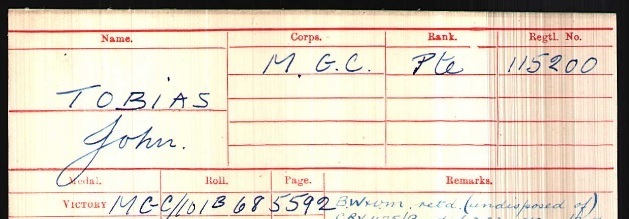 Name. Corps. Rank. Regtl. No.
M. G. C. Pte 115200
TOBIAS
John.
Medal. Roll. Page. Remarks.
VICTORY MGC/101B68 5592 B.W & V.M. retd. (undisposed of)